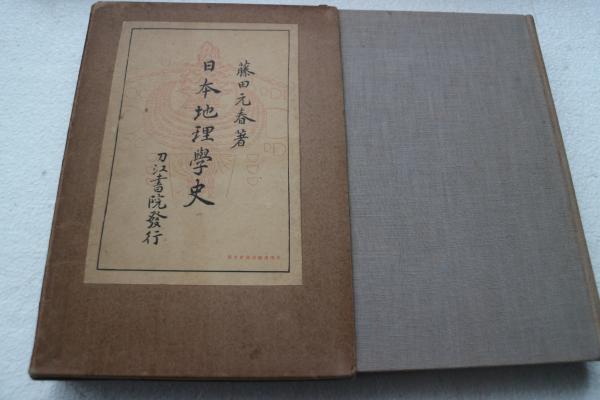 藤田元春著
日本地理學史
刀江書院發行